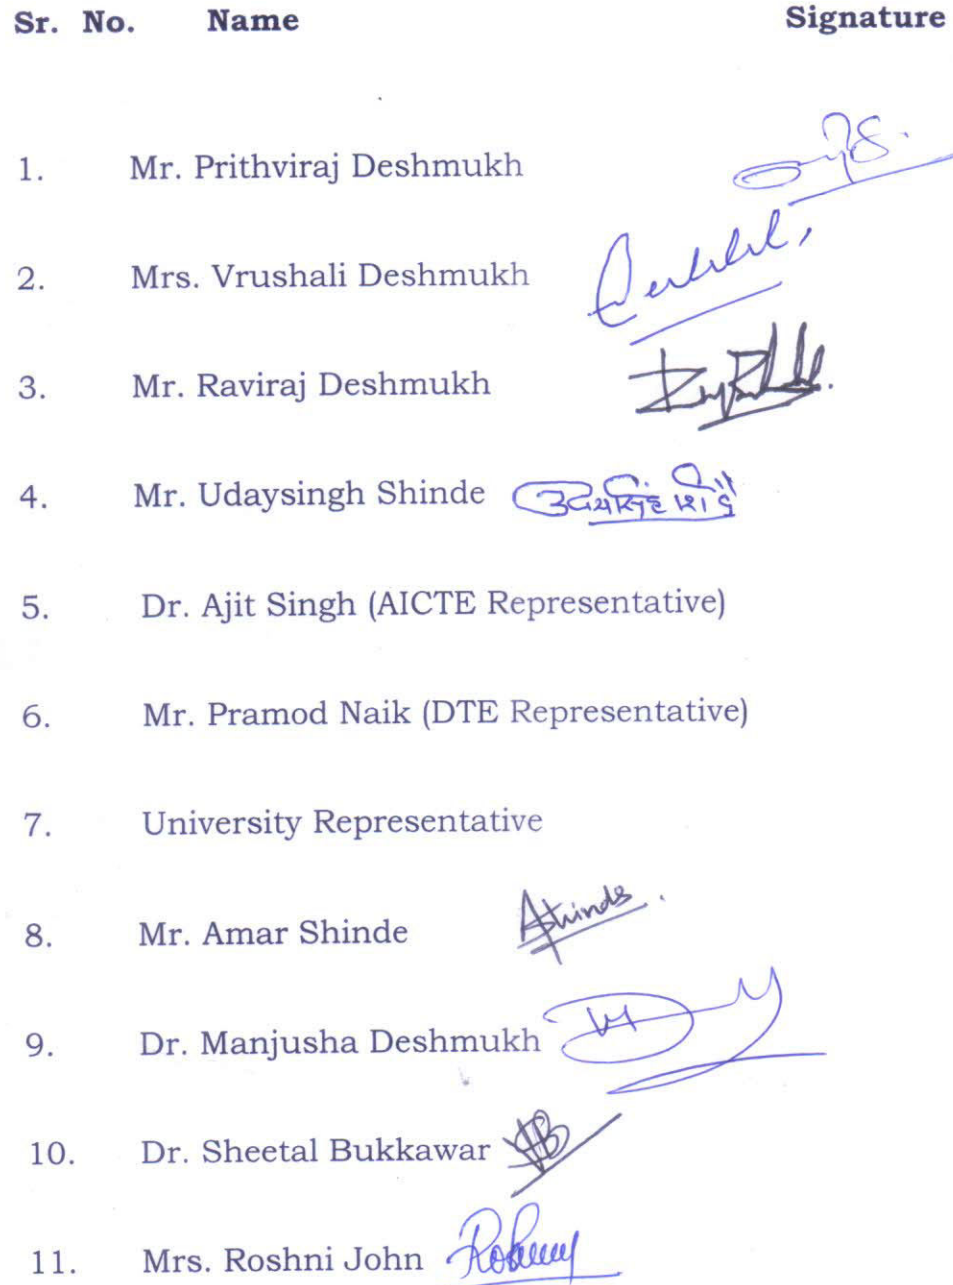 Sr. No. Name Signature
1. Mr. Prithviraj Deshmukh
2. Mrs. Vrushali Deshmukh
3. Mr. Raviraj Deshmukh
4. Mr. Udaysingh Shinde उदयसिंह शिंदे
5. Dr. Ajit Singh (AICTE Representative)
6. Mr. Pramod Naik (DTE Representative)
7. University Representative
8. Mr. Amar Shinde AShinde.
9. Dr. Manjusha Deshmukh
10. Dr. Sheetal Bukkawar
11. Mrs. Roshni John